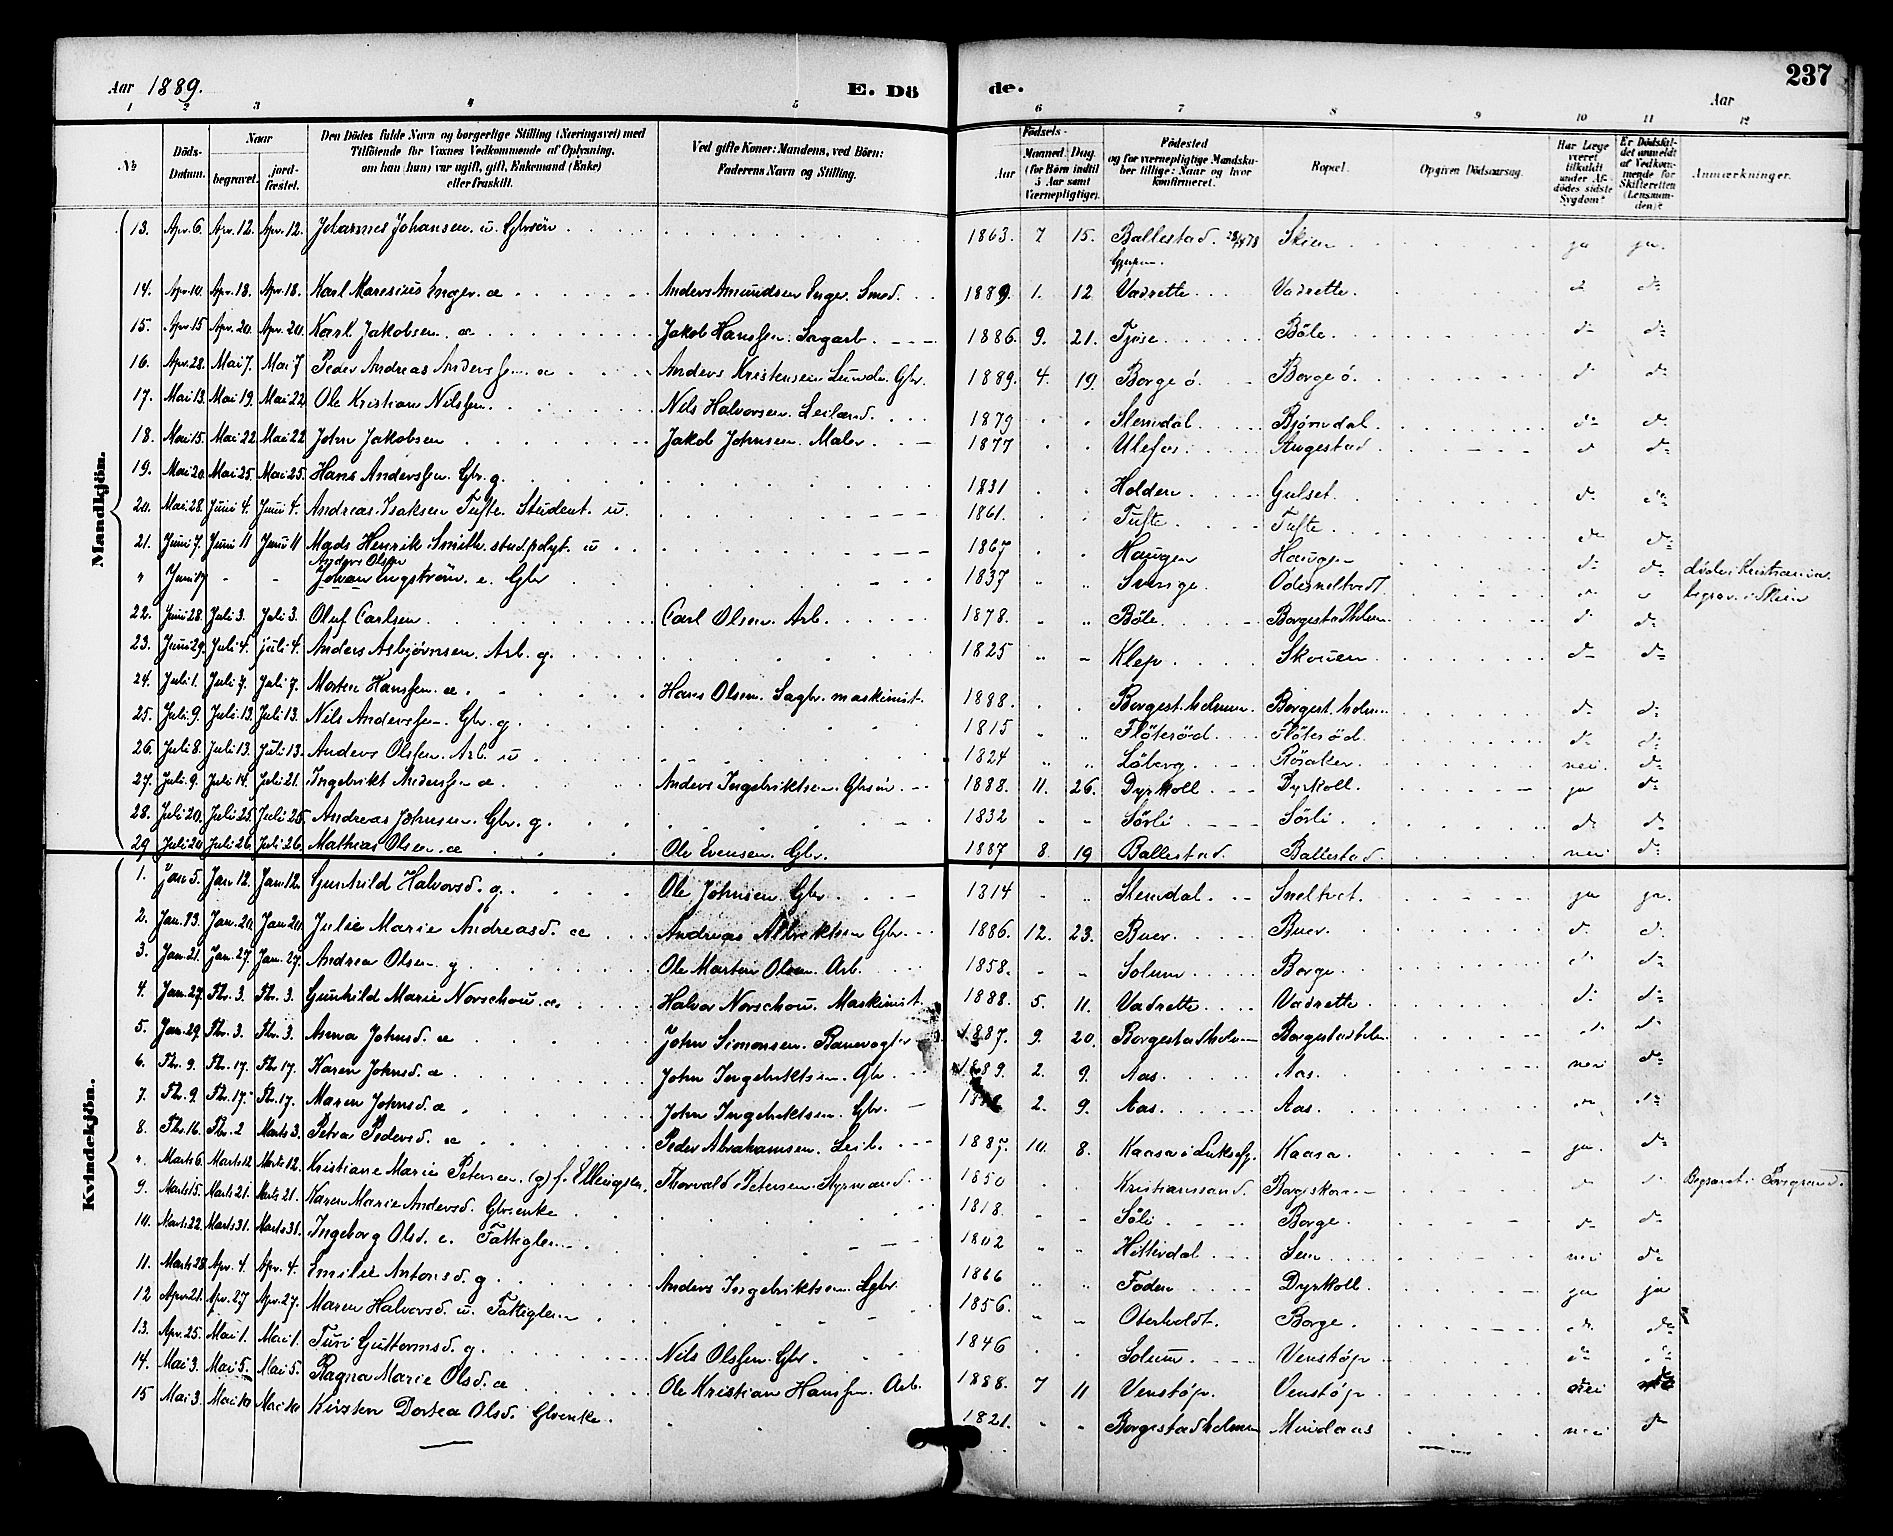 Aar 1889. E. Dö de. Aar 237
1 2 3 4 5 6 7 8 9 10 11 12
№ Döds-Datum. Naar begravet. jord-fæstet. Den Dödes fulde Navn og borgerlige Stilling (Næringsvei) med Tilföiende for Voxnes Vedkommende af Oplysning, om han (hun) var ugift, gift, Enkemand (Enke) eller fraskilt. Ved gifte Koner: Mandens, ved Börn: Faderens Navn og Stilling. Födsels- Aar Maaned. Dag. (for Börn indtil 5 Aar samt Værnepligtige). Födested og for værnepligtige Mandsku-ber tillige: Naar og hvor konfirmeret. Bopæl. Opgiven Dödsaarsag. Har Læge været tilkaldt under Af-dödes sidste Sygdom? Er Dödsfal-det anmeldt af Vedkom-mende for Skifteretten (Lensman-den)? Anmærkninger.
Mandkjön.
13. Apr. 6. Apr. 12. Apr. 12. Johannes Johansen u. Gbrsön 1863. 7 15. Ballestad. Gjerpen Skien ja ja
14. Apr. 10. Apr. 18. Apr. 18. Karl Maresius Enger. æ Anders Amundsen Enger. Smed. 1889. 1. 12 Vadrette Vadrette. d- d-
15. Apr. 15 Apr. 20. Apr. 20. Karl Jakobsen. æ Jakob Hanssen. Sagarb. 1886. 9. 21. Tjose Böle. d- d-
16. Apr. 28. Mai 7. Mai 7 Peder Andreas Anderssen æ Anders Kristensen Lunde. Gbr. 1889. 4. 19. Borge ö. Borge ö. d- d-
17. Mai 13. Mai 19. Mai 22 Ole Kristian Nilssen. Nils Halvorsen. Leilænd. 1879 Stendal. Bjørndal. d- d-
18. Mai 15. Mai 22. Mai 22 John Jakobsen Jakob Johnsen. Maler. 1877 Ulefos Augestad d d-
19. Mai 20. Mai 25. Mai 25. Hans Anderssen. Gbr. g. 1831 Holden Gulset. d- d-
20. Mai 28. Juni 4. Juni 4. Andreas Isaksen Tufte. Student. u. 1861. Tufte. Tufte. d- d-
21. Juni 7. Juni 11 Juni 11 Mads Henrik Smith. stud. polyt. u 1867 Haugen Haugen d- d- döde i Kristiania
Anders Olsen
" Juni 17 - - Johan Engström. e. Gbr 1837 Sverige. d- begrav. i Skien
22. Juni 28. Juli 3. Juli 3. Oluf Carlsen. Carl Olsen. Arb. 1878. Böle. Borgestadholm d- d-
23. Juni 29. Juli 4. juli 4. Anders Asbjörnsen. Arb. g. 1825 Klep Skouen d- d-
24. Juli 1. Juli 7. Juli 7. Morten Hanssen. æ. Hans Olsen. Sagbr. maskinist. 1888. Borgest. holmen. Borgest. holm d- d-
25. Juli 9. Juli 13. Juli 13. Nils Anderssen. Gbr. g. 1815 Flöteröd. Flöteröd. d- d-
26. Juli 8. Juli 13. Juli 13. Anders Olssen. Arb. u 1824 Löberg. Rösaker. nei. d-
27. Juli 9. Juli 14. Juli 21. Ingebrikt Anderssen æ Anders Ingebriktsen. Gbrsön. 1888. 11. 26. Dyrkoll Dyrkoll. ja d-
28. Juli 20. Juli 25. Juli 25. Andreas Johnsen. Gbr. g. 1832 Sörli Sörli d- d-
29 Juli 20 Juli 26. Juli 26. Mathias Olsen. æ Ole Evensen. Gbr. 1887 8. 19 Ballestad. Ballestad. nei d-
Kvindekjön.
1. Jan 5. Jan 12. Jan 12. Gunhild Halvorsd. g. Ole Johnsen. Gbr. 1814 Stendal. Sneltvet. ja ja.
2. Jan. 13. Jan. 20. Jan 20. Julie Marie Andreasd. æ Andreas Albrektsen Gbr. 1886. 12. 23. Buer. Buer. d- d-
3. Jan. 21. Jan. 27. Jan. 27. Andrea Olsen. g Ole Martin Olsen. Arb. 1858. Solum Borge. d- d-
4. Jan. 27. Fbr. 3. Fbr. 3. Gunhild Marie Norschou. æ. Halvor Norschou. Maskinist. 1888. 5. 11. Vadrette Vadrette d- d-
5. Jan. 29. Fbr. 3. Fbr. 3. Anna Johnsd. æ John Simonsen. Banevogter 1887. 9. 20. Borgestadholm Borgestadholm d- d-
6. Fbr. 9. Fbr. 17. Fbr. 17. Karen Johnsd. æ John Ingebriktsen. Gbr 1889. 2. 9. Aas. Aas. nei d-
7. Fbr. 9 Fbr. 17. Fbr. 17. Maren Johnsd. æ John Ingebriktsen. Gbr. 2. 9. Aas. Aas. d- d-
8. Fbr. 16. Fbr. 2 Marts 3. Petra Pedersd. æ Peder Abrahamsen. Leil. 1887. 10. 8. Kaasa i Luksefj. Kaasa. ja. d-
" Marts 6. Marts 12 Marts 12. Kristiane Marie Petersen. (g) f. Ellingsen. Thorvald Petersen. Styrmand. 1850 Kristianssand. d- d- Begravet i Porsgrund.
9. Marts 15. Marts 21. Marts 21. Karen Marie Andersd. Gbrenke 1818. Söli Borge. d- d-
10. Marts 22. Marts 31. Marts 31. Ingeborg Olsd. e. Fattiglem 1802 Hitterdal Sem nei d-
11. Marts 28 Apr. 4. Apr. 4. Emilie Antonsd. g Anders Ingebriktsen. Lgbr 1866 Foden Dyrkoll. ja ja
12 Apr. 21. Apr. 27 Apr. 27. Maren Halvorsd. u. Fattiglem 1856. Oterholdt. Borge. d- d-
13. Apr. 25. Mai 1. Mai 1. Turi Guttormsd. g. Nils Olssen. Gbr. 1846 Solum. Venstöp d- d-
14. Mai 3. Mai 5. Mai 5. Ragna Marie Olsd. æ Ole Kristian Hanssen. Arb. 1888. 7 11 Venstöp. Venstöp nei
15 Mai 3. Mai 10 Mai 10 Kirsten Dortea Olsd. Gbrenke. 1821. Borgestadholmen nei d-